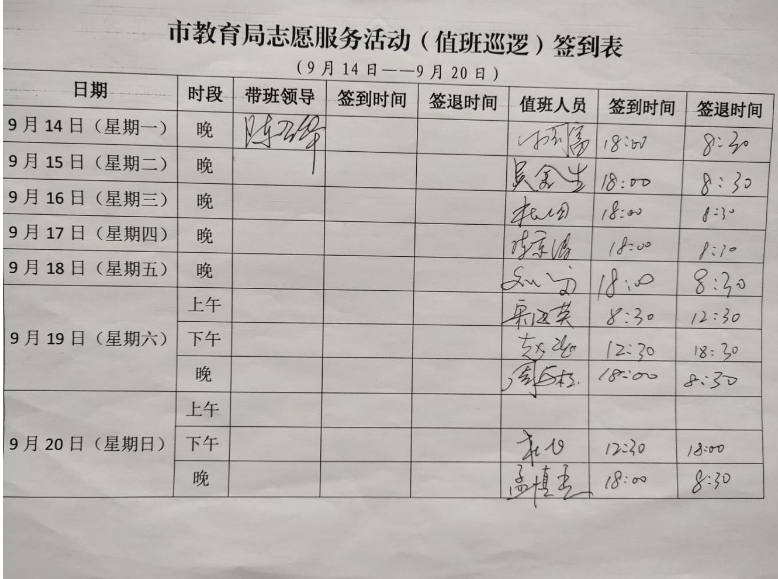 市教育局志愿服务活动（值班巡逻）签到表
（9月14日——9月20日）
日期 时段 带班领导 签到时间 签退时间 值班人员 签到时间 签退时间
9月14日（星期一） 晚 18:00 8:30
9月15日（星期二） 晚 吴金生 18:00 8:30
9月16日（星期三） 晚 18:00 8:30
9月17日（星期四） 晚 18:00 8:30
9月18日（星期五） 晚 18:00 8:30
9月19日（星期六） 上午 8:30 12:30
下午 12:30 18:30
晚 18:00 8:30
9月20日（星期日） 上午
下午 12:30 18:00
晚 18:00 8:30